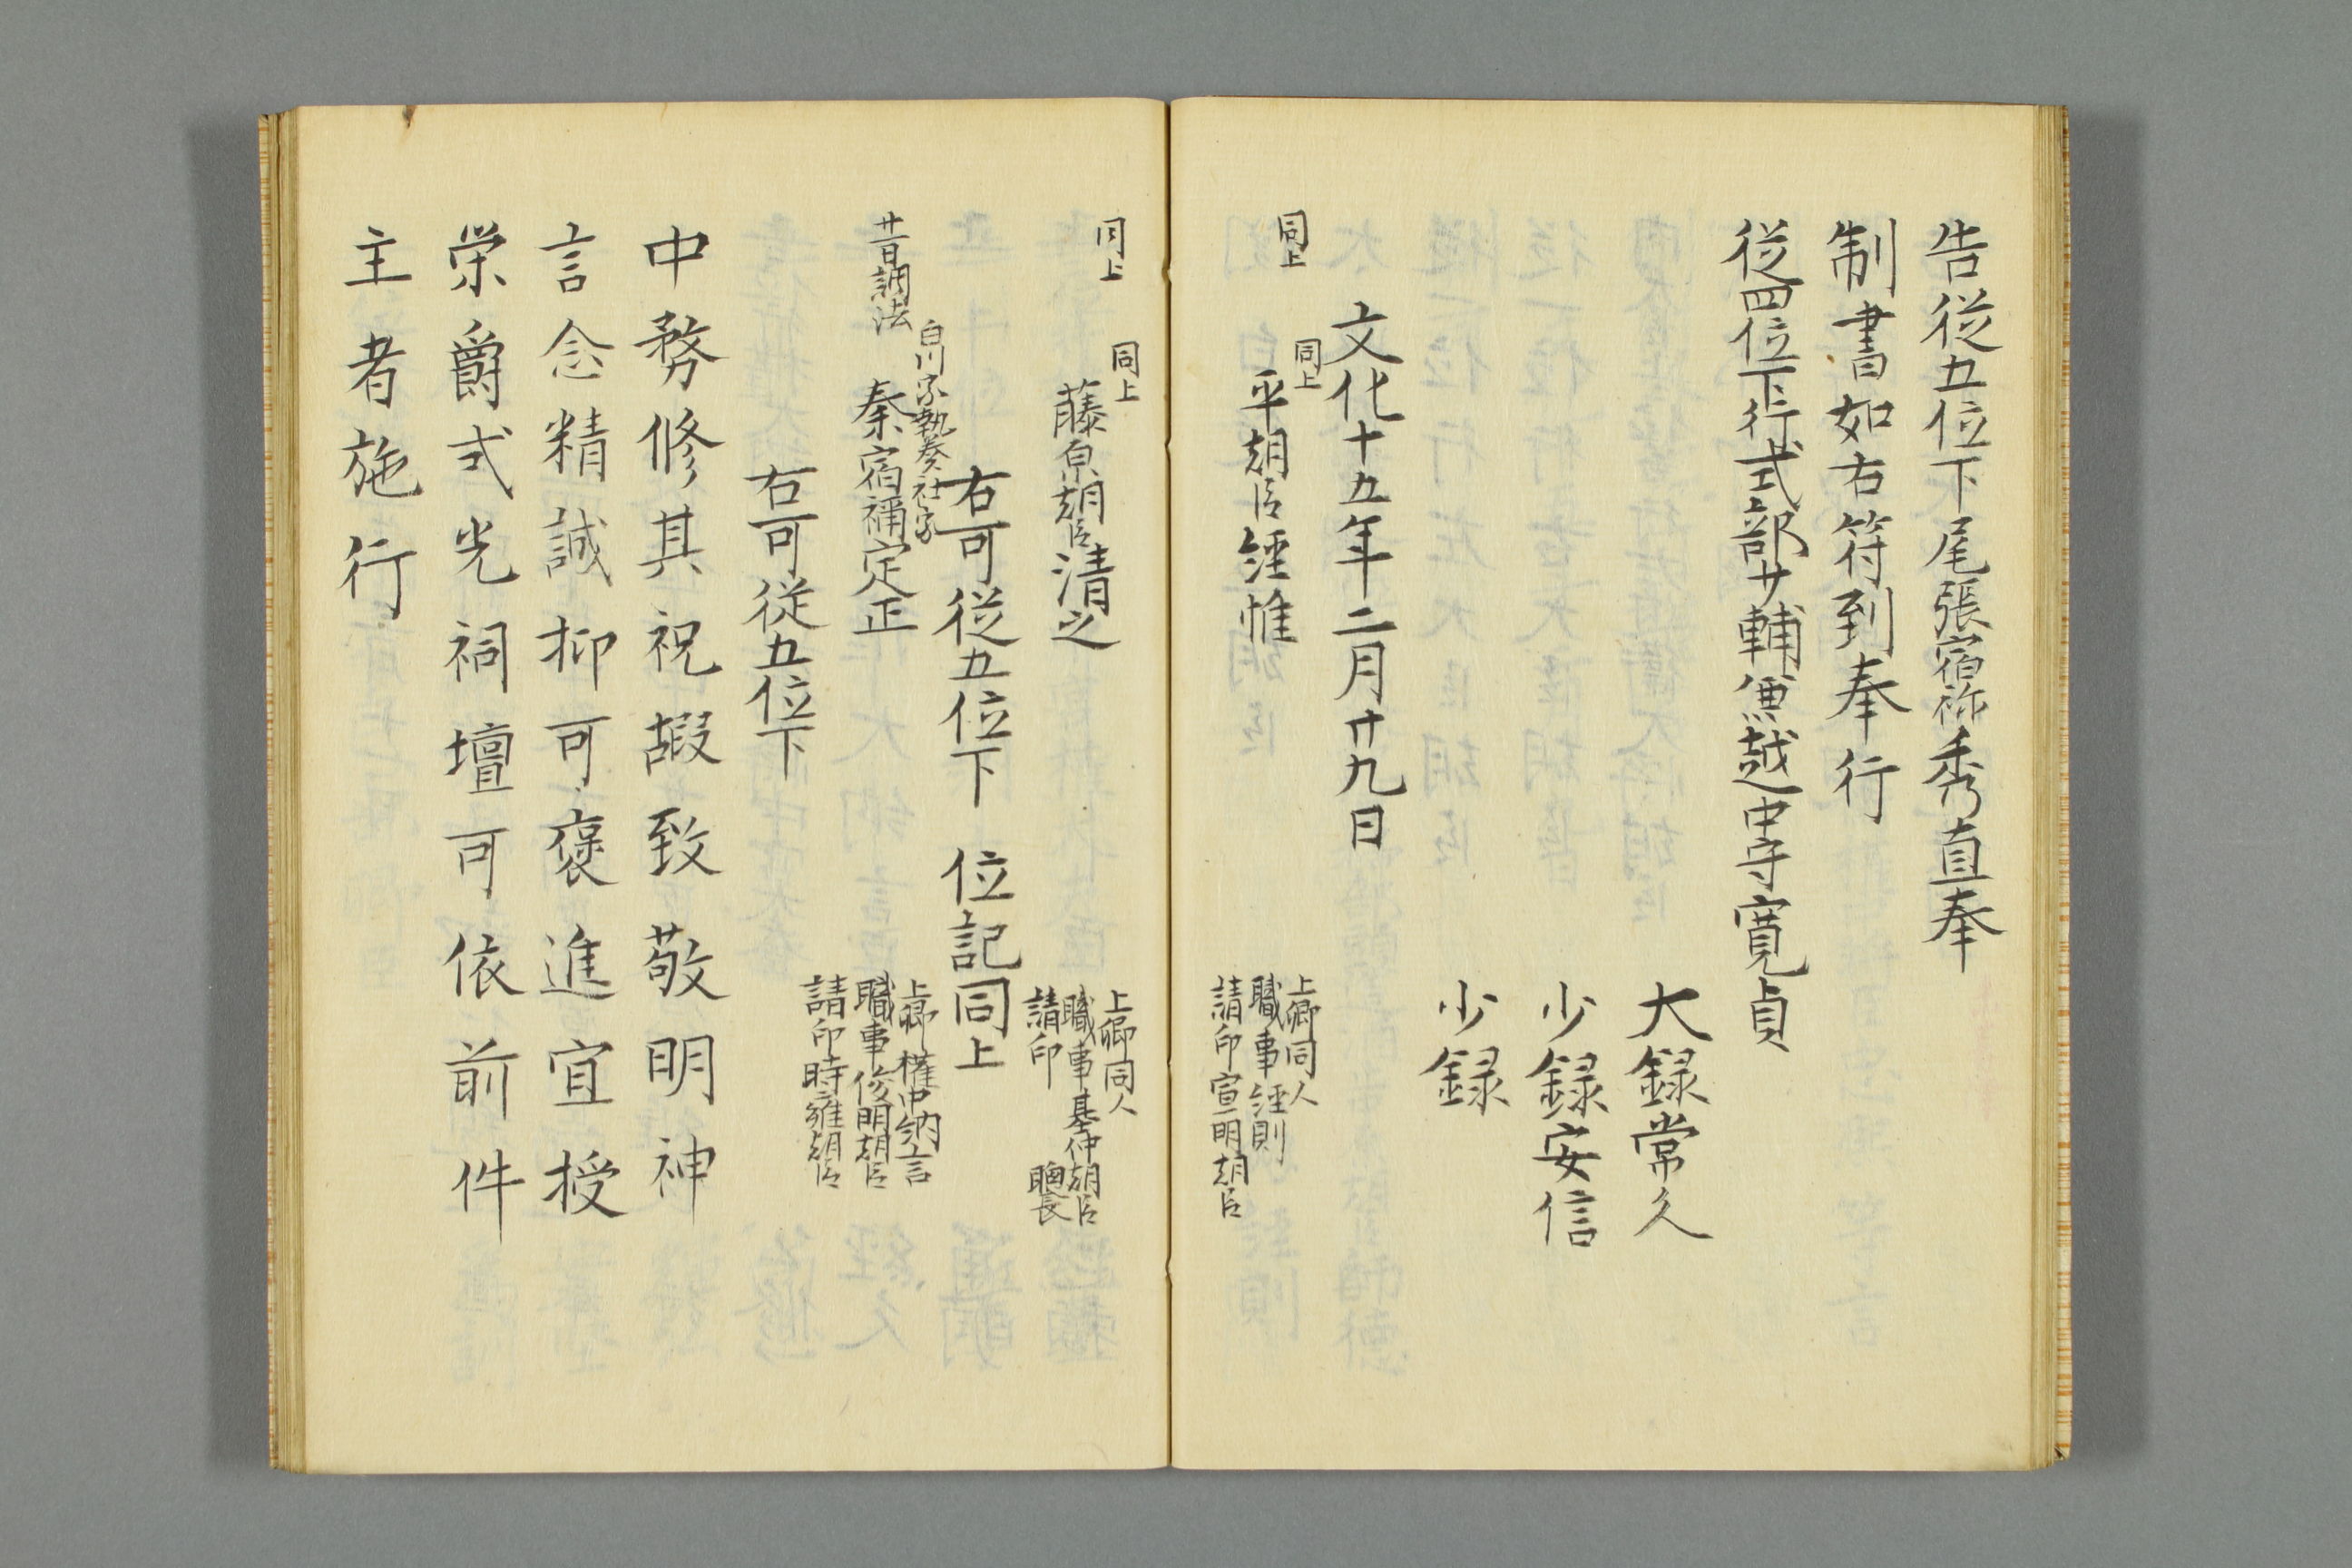 告従五位下尾張宿祢秀直奉
制書如右符到奉行
従四位下行式部少輔兼越中守寛貞
大録常久
少録安信
少録
文化十五年二月廿九日
同上
同上
平朝臣経惟
上卿同人
職事経則
請印宣明朝臣
同上
同上
藤原朝臣清之
上卿同人
職事基仲朝臣
請印 聰長
右可従五位下 位記同上
白川家執奏社家
秦宿祢定正
上卿権中納言
職事俊明朝臣
請印時雍朝臣
右可従五位下
中務修其祝嘏致敬明神
言念精誠抑可褒進宜授
栄爵式光祠壇可依前件
主者施行